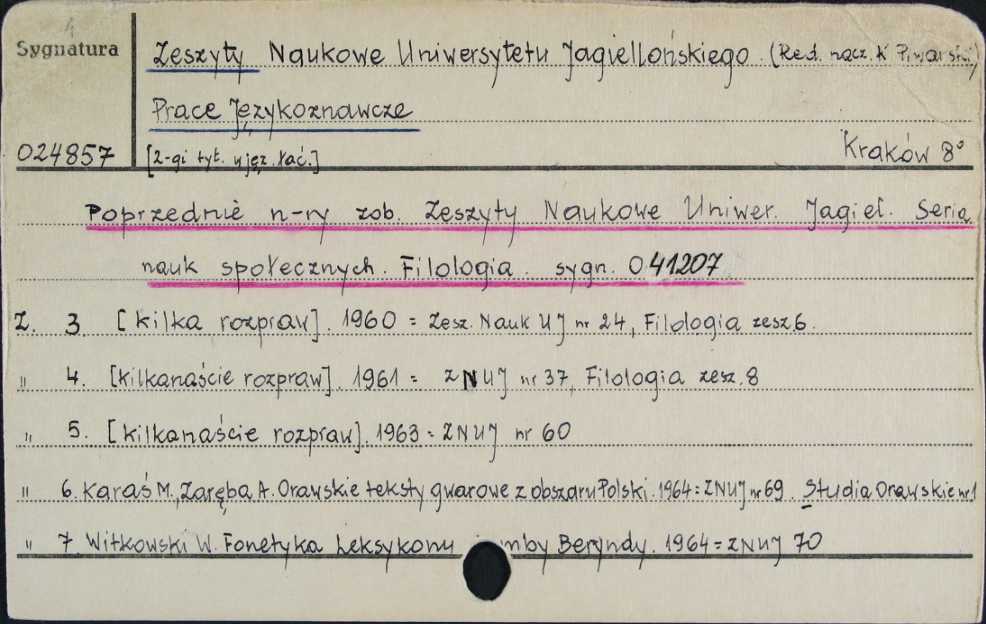 Sygnatura
Zeszyty Naukowe Uniwersytetu Jagiellońskiego. (Red. nacz. K Piwarski)
Prace Językoznawcze
024857 [2-gi tyt. w jęz. łać.] Kraków 8°
Poprzednie n-ry zob. Zeszyty Naukowe Uniwer. Jagiel. Seria
nauk społecznych. Filologia. sygn. 041207
Z. 3 [kilka rozpraw]. 1960 = Zesz. Nauk UJ nr 24, Filologia zesz. 6.
" 4. [kilkanaście rozpraw]. 1961 = ZNUJ nr 37, Filologia zesz. 8
" 5. [kilkanaście rozpraw]. 1963 = ZNUJ nr 60
" 6. Karaś M., Zaręba A. Orawskie teksty gwarowe z obszaru Polski. 1964 = ZNUJ nr 69. Studia Orawskie nr 1
" 7. Witkowski W. Fonetyka Leksykonu mby Beryndy. 1964 = ZNUJ 70